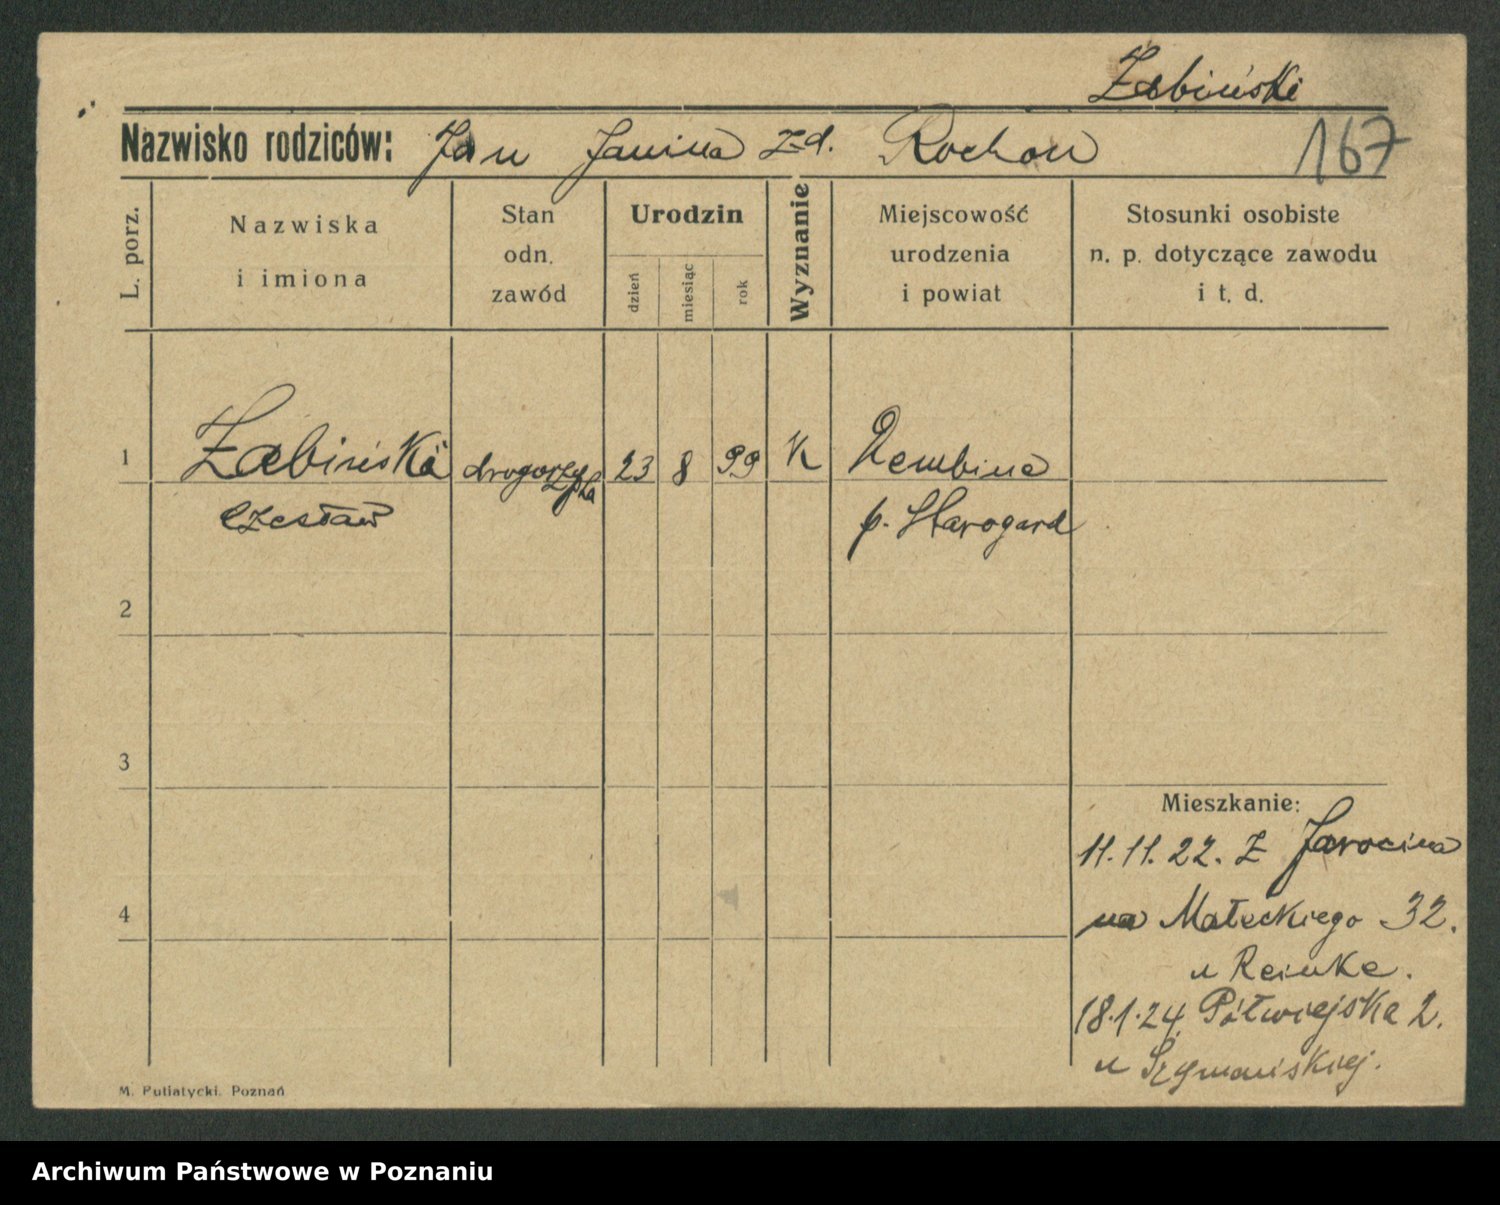 Żabiński
Nazwisko rodziców: Jan Janina z d. Rochon
167
L. porz.
Nazwiska
i imiona
Stan
odn.
zawód
Urodzin
dzień
miesiąc
rok
Wyznanie
Miejscowość
urodzenia
i powiat
Stosunki osobiste
n. p. dotyczące zawodu
i t. d.
1
Żabiński
Czesław
drogorzysta
23 8 99
K
Dembina
p. Starogard
2
3
4
Mieszkanie:
11.11.22. z Jarocina
na Małeckiego 32.
u Reinke.
18.1.24. Półwiejska 2.
u Szymańskiej.
M. Putiatycki. Poznań
Archiwum Państwowe w Poznaniu